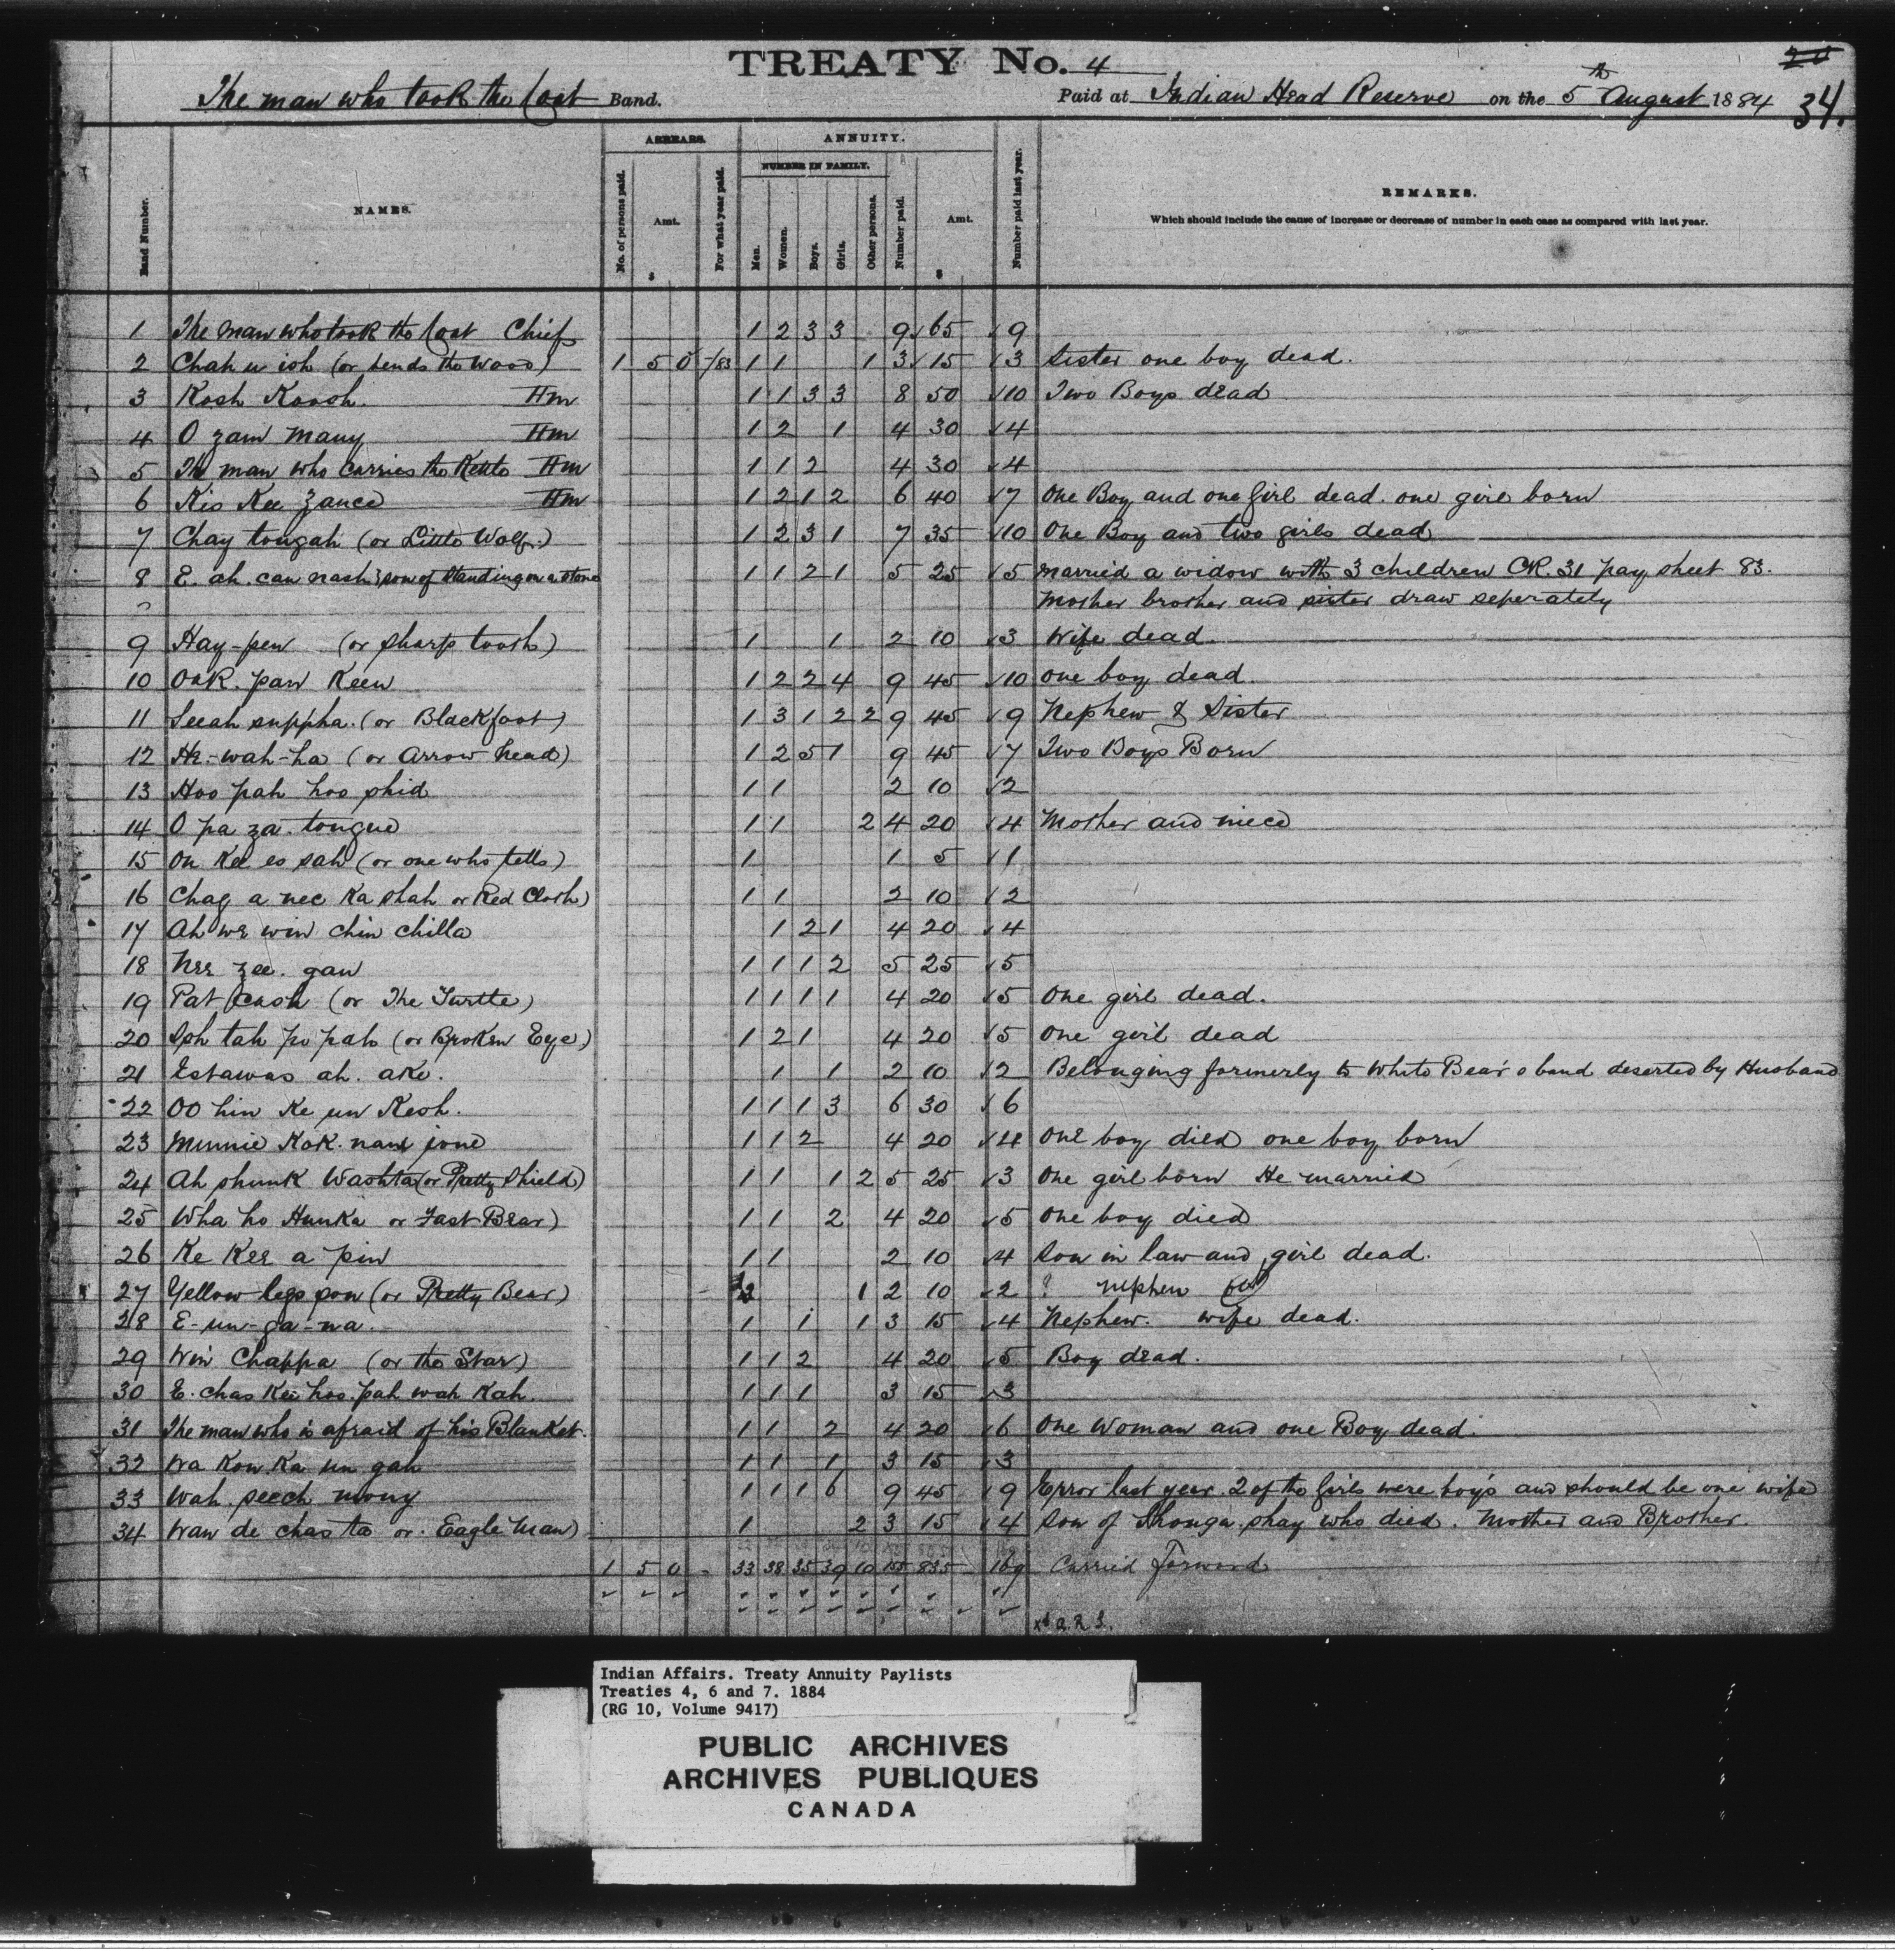 TREATY No. 4
20
34.
The man who took the Coat Band.
Paid at Indian Head Reserve on the 5th August 1884
ARREARS. ANNUITY.
NUMBER IN FAMILY.
Band Number. NAMES. No. of persons paid. Amt. $ For what year paid. Men. Women. Boys. Girls. Other persons. Number paid. Amt. $ Number paid last year. REMARKS.
Which should include the cause of increase or decrease of number in each case as compared with last year.
1 The man who took the Coat Chief 1 2 3 3 9 65 9
2 Chah u ish (or bends the Wood) 1 5 0 /83 1 1 1 3 15 3 Sister one boy dead.
3 Kosh Kaooh. Hm 1 1 3 3 8 50 10 Two Boys dead
4 O zam many Hm 1 2 1 4 30 4
5 The man who carries the Kettle Hm 1 1 2 4 30 4
6 Kis Kee zance Hm 1 2 1 2 6 40 7 One Boy and one Girl dead. one girl born
7 Chay tongah (or Little Wolf.) 1 2 3 1 7 35 10 One Boy and two girls dead
8 E. ah. can nash son of Standing on a stone 1 1 2 1 5 25 5 Married a widow with 3 children CK. 31 pay sheet 83.
Mother brother and sister draw seperately
9 Hay-pen (or sharp tooth) 1 1 2 10 3 Wife dead.
10 Oak. pan Keen 1 2 2 4 9 45 10 One boy dead.
11 Seeah suppha. (or Blackfoot) 1 3 1 2 2 9 45 9 Nephew & Sister
12 He-wah-ha (or Arrow head) 1 2 5 1 9 45 7 Two Boys Born
13 Hoo pah hoo shid 1 1 2 10 2
14 O pa za. tongue 1 1 2 4 20 4 Mother and niece
15 On Kee eo sah (or one who tells) 1 1 5 1
16 Chag a nee Ka shah or Red Cloth) 1 1 2 10 2
17 Ah we win chin chilla 1 2 1 4 20 4
18 Nee zee. gan 1 1 1 2 5 25 5
19 Pat Kash (or The Turtle) 1 1 1 1 4 20 5 One girl dead.
20 Ish tah po pah (or Broken Eye) 1 2 1 4 20 5 One girl dead
21 Estawas ah. ake. 1 1 2 10 2 Belonging formerly to White Bear's band deserted by Husband
22 OO hin Ke un Kesh. 1 1 1 3 6 30 6
23 Minnie Kok. nam jone 1 1 2 4 20 4 One boy died one boy born
24 Ah shunk Washta (or Pretty Shield) 1 1 1 2 5 25 3 One girl born He married
25 Wha ho Hunka or Fast Bear) 1 1 2 4 20 5 One boy died
26 Ke Kee a pin 1 1 2 10 4 Son in law and girl dead.
27 Yellow legs son (or Pretty Bear) 1 2 10 2 ? Nephew
28 E-un-ga-na. 1 1 1 3 15 4 Nephew. wife dead.
29 Win Chappa (or the Star) 1 1 2 4 20 5 Boy dead.
30 E. chas Kee hoo. pah wah Kah. 1 1 1 3 15 3
31 The man who is afraid of his Blanket. 1 1 2 4 20 6 One Woman and one Boy dead.
32 Wa Kon Ka un gah 1 1 1 3 15 3
33 Wah. seech mony 1 1 1 6 9 45 9 Error last year. 2 of the Girls were boys and should be one wife
34 Wan de chas ta or. Eagle Man) 1 2 3 15 4 Son of Shonga. shay who died. Mother and Brother.
1 5 0 - 33 38 35 39 10 155 835 169 Carried Forward
Indian Affairs. Treaty Annuity Paylists
Treaties 4, 6 and 7. 1884
(RG 10, Volume 9417)
PUBLIC ARCHIVES
ARCHIVES PUBLIQUES
CANADA